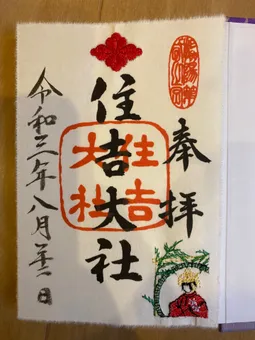 奉拝
住吉大社
住吉
大社
令和三年八月日